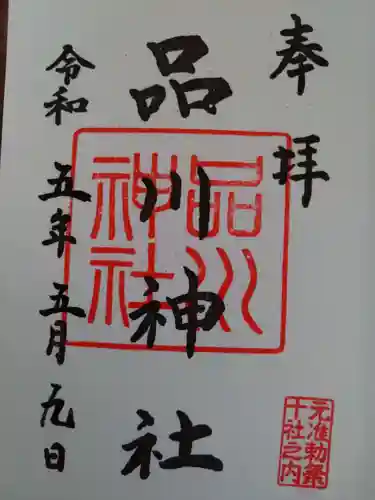 奉拝
品川神社
令和五年五月九日
品川
神社
元准勅祭
十社之内